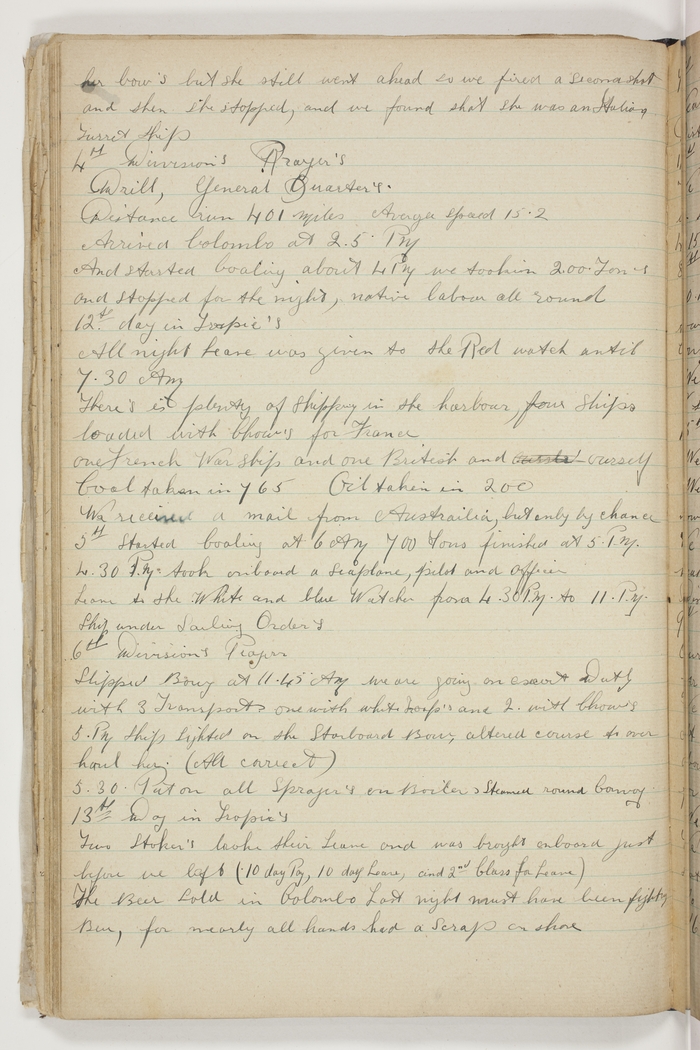 her bow's but she still went ahead so we fired a second shot
and then she stopped, and we found that she was an Italian
Turret Ship
4th Division's Prayer's
Drill, General Quarter's.
Distance run 401 miles Average speed 15.2
Arrived Colombo at 2.5 PM
And started coaling about 4 PM we took in 200 Tons
and stopped for the night, native labour all round
12th day in Tropic's
All night leave was given to the Red watch until
7.30 AM
There's is plenty of shipping in the harbour, four ships
loaded with Chow's for France
one French War Ship and one British and ourself
Coal taken in 765 Oil taken in 200
We received a mail from Austrailia, but only by chance
5th Started coaling at 6 AM 700 Tons finished at 5 P.M.
4.30 P.M. took onboard a seaplane, pilot and officer
Leave to the White and blue Watches from 4.30 PM. to 11. P.M.
Ship under Sailing Order's
6th Division's Prayers
Slipped Bouy at 11.45 AM we are going on escort Duty
with 3 Transports one with white troop's and 2. with Chow's
5. PM Ship sighted on the Starboard Bow, altered course to over
haul her. (All correct)
5.30. Put on all Sprayer's on Boilers Steamed round Convoy
13th Day in Tropic's
Two Stoker's broke their Leave and was brought onboard just
before we left (10 day Pay, 10 day Leave, and 2nd Class for Leave)
The Beer Sold in Colombo Last night must have been fighting
Beer, for nearly all hands had a Scrap on shore